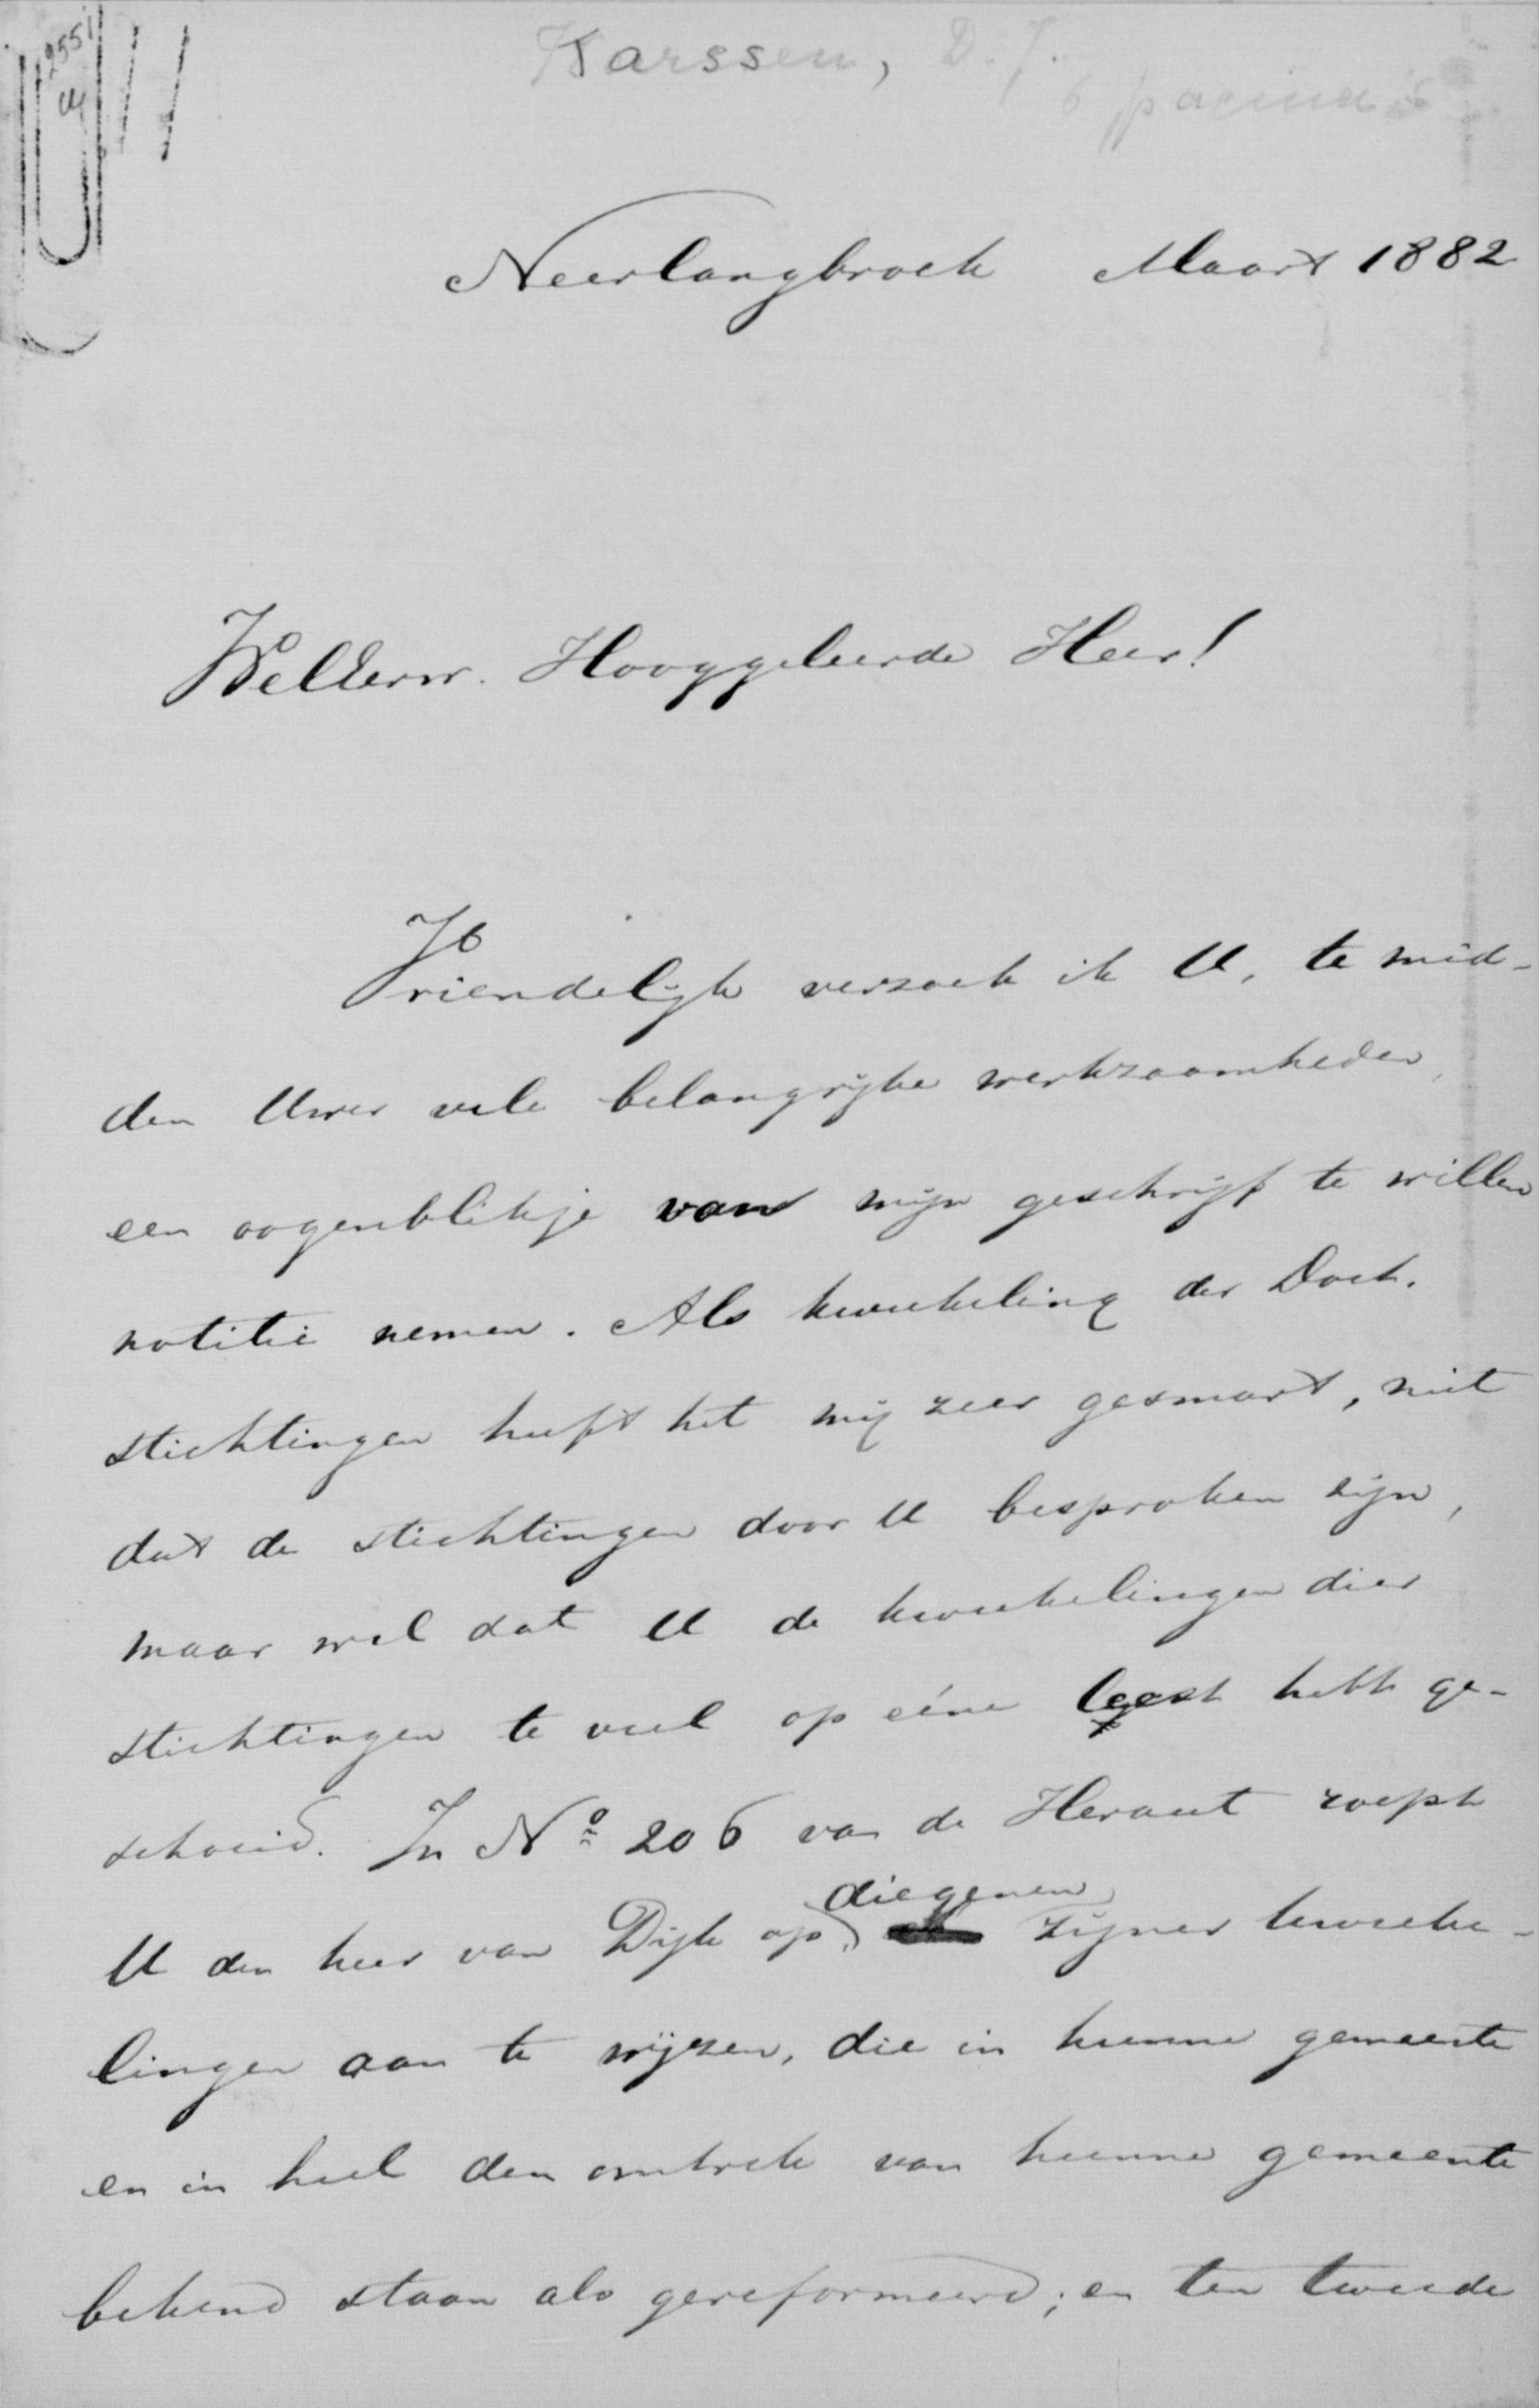 2551
Karssen, D. J.
6 pagina's
Neerlangbroek Maart 1882
WelEerw. Hooggeleerde Heer!
Vriendelijk verzoek ik U, te mid-
den Uwer vele belangrijke werkzaamheden,
een oogenblikje van mijn geschrijf te willen
notitie nemen. Als kweekeling der Doet.
stichtingen heeft het mij zeer gesmart, niet
dat de stichtingen door U besproken zijn,
maar wel dat U de kweekelingen dier
stichtingen te veel op eéne leest hebt ge-
schoeid. In No 206 van de Heraut roept
U den heer van Dijk op, diegenen zijner kweeke-
lingen aan te wijzen, die in hunne gemeente
en in heel den omtrek van hunne gemeente
bekend staan als gereformeerd; en ten tweede